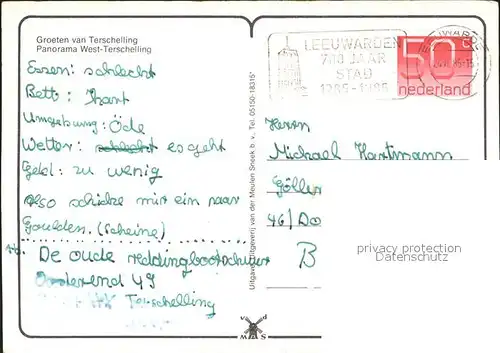 Groeten van Terschelling
Panorama West-Terschelling
Essen: schlecht
Bett: hart
Umgebung: Öde
Wetter: schlecht es geht
Geld: zu wenig
Also schicke mir ein paar
Goulden. (Scheine)
De oude reddingbootschuur
Oosterend 49
Terschelling
Uitgave: Uitgeverij van der Meulen Sneek b.v. Tel. 05150-18315*
LEEUWARDEN
700 JAAR
STAD
1285-1985
50 c
nederland
Herrn
Michael Hartmann
Göll
46/Do
B
privacy protection
Datenschutz
v d
S W M